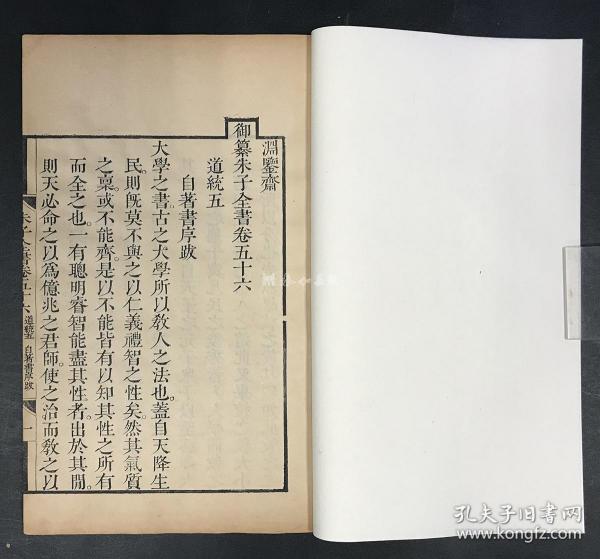 淵鑒齋
御纂朱子全書卷五十六
道統五
自著書序跋
大學之書古之大學所以敎人之法也。蓋自天降生
民。則旣莫不與之以仁義禮智之性矣。然其氣質
之稟。或不能齊。是以不能皆有以知其性之所有
而全之也。一有聰明睿智能盡其性者。出於其閒。
則天必命之以爲億兆之君師。使之治而敎之以
朱子全書卷五十六 道統五 自著書序跋 一
孔夫子旧书网
book.kongfz.com